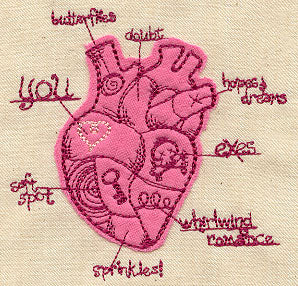 butterflies
doubt
you
hopes &
dreams
exes
soft
spot
whirlwind
romance
sprinkles!